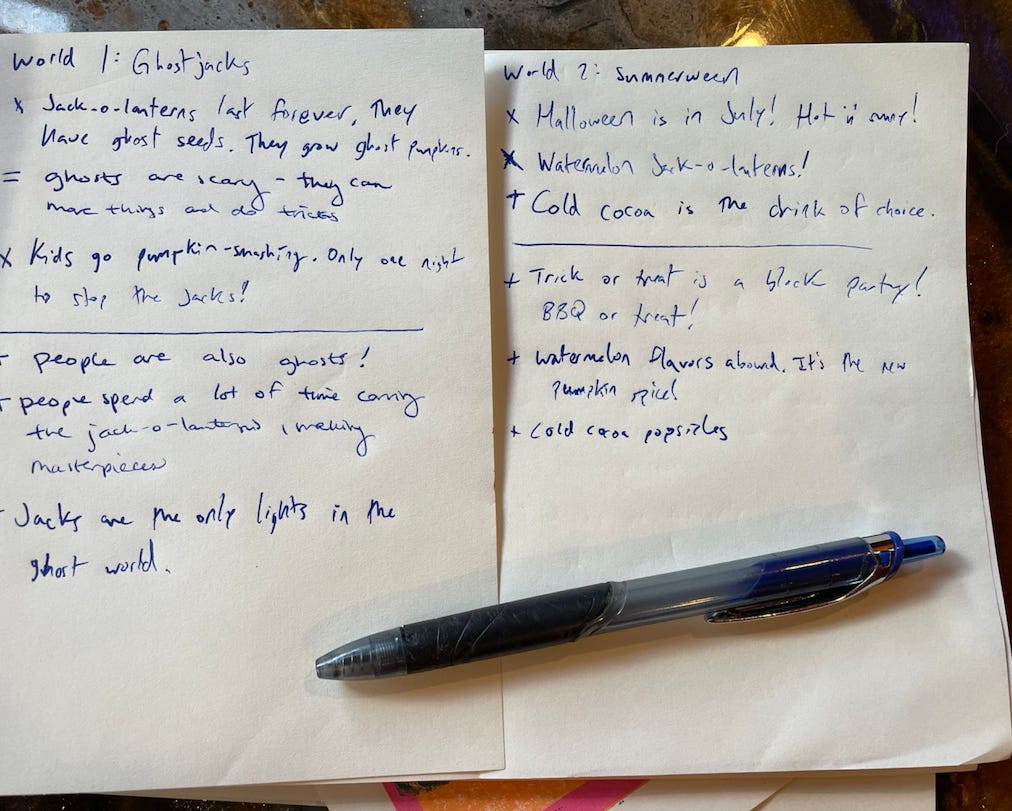 World 1: Ghostjacks
x Jack-o-lanterns last forever, They
have ghost seeds. They grow ghost pumpkins.
= ghosts are scary - they can
move things and do tricks
x Kids go pumpkin-smashing. Only one night
to stop the Jacks!
+ people are also ghosts!
+ people spend a lot of time carving
the jack-o-lanterns, making
masterpieces
- Jacks are the only lights in the
ghost world.
World 2: Summerween
x Halloween is in July! Hot sunny!
x Watermelon Jack-o-lanterns!
+ Cold cocoa is the drink of choice.
+ Trick or treat is a block party!
BBQ or treat!
+ watermelon flavors abound. It's the new
pumpkin spice!
+ Cold cocoa popsicles